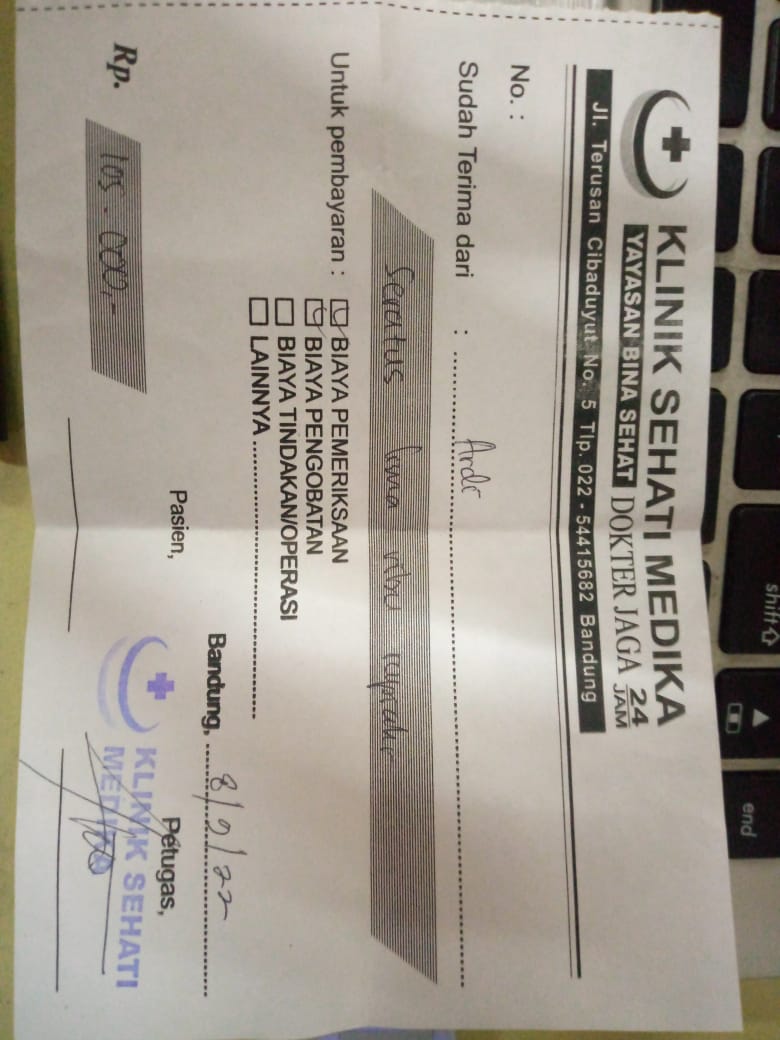 KLINIK SEHATI MEDIKA
YAYASAN BINA SEHAT DOKTER JAGA 24 JAM
Jl. Terusan Cibaduyut No. 5 Tlp. 022 - 54415682 Bandung
No. :
Sudah Terima dari :
Seratus lima ribu rupiah
Untuk pembayaran : BIAYA PEMERIKSAAN
BIAYA PENGOBATAN
BIAYA TINDAKAN/OPERASI
LAINNYA
Bandung, 8/9/22
Pasien, Petugas,
Rp. 105.000,-
KLINIK SEHATI
MEDIKA
shift
end